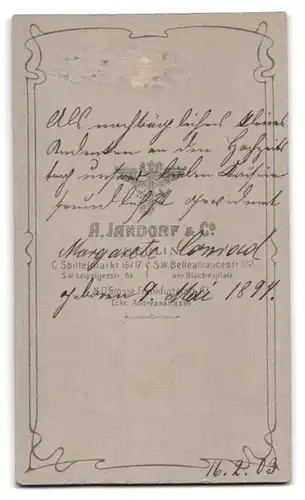 Als nachträgliches kleines
Andenken an den Hochzeits
tag unserer lieben Cousine
freundlichst gewidmet
A. JANDORF & Co
BERLIN
Margarete Conrad
C. Spittelmarkt 16/17 S.W. Bellealliancestr. 1/2
S.W. Leipzigerstr. am Blücherplatz
geboren 9. Mai 1894.
N.O. Grosse Frankfurterstr.
Ecke Andreasstrasse
16.2.03